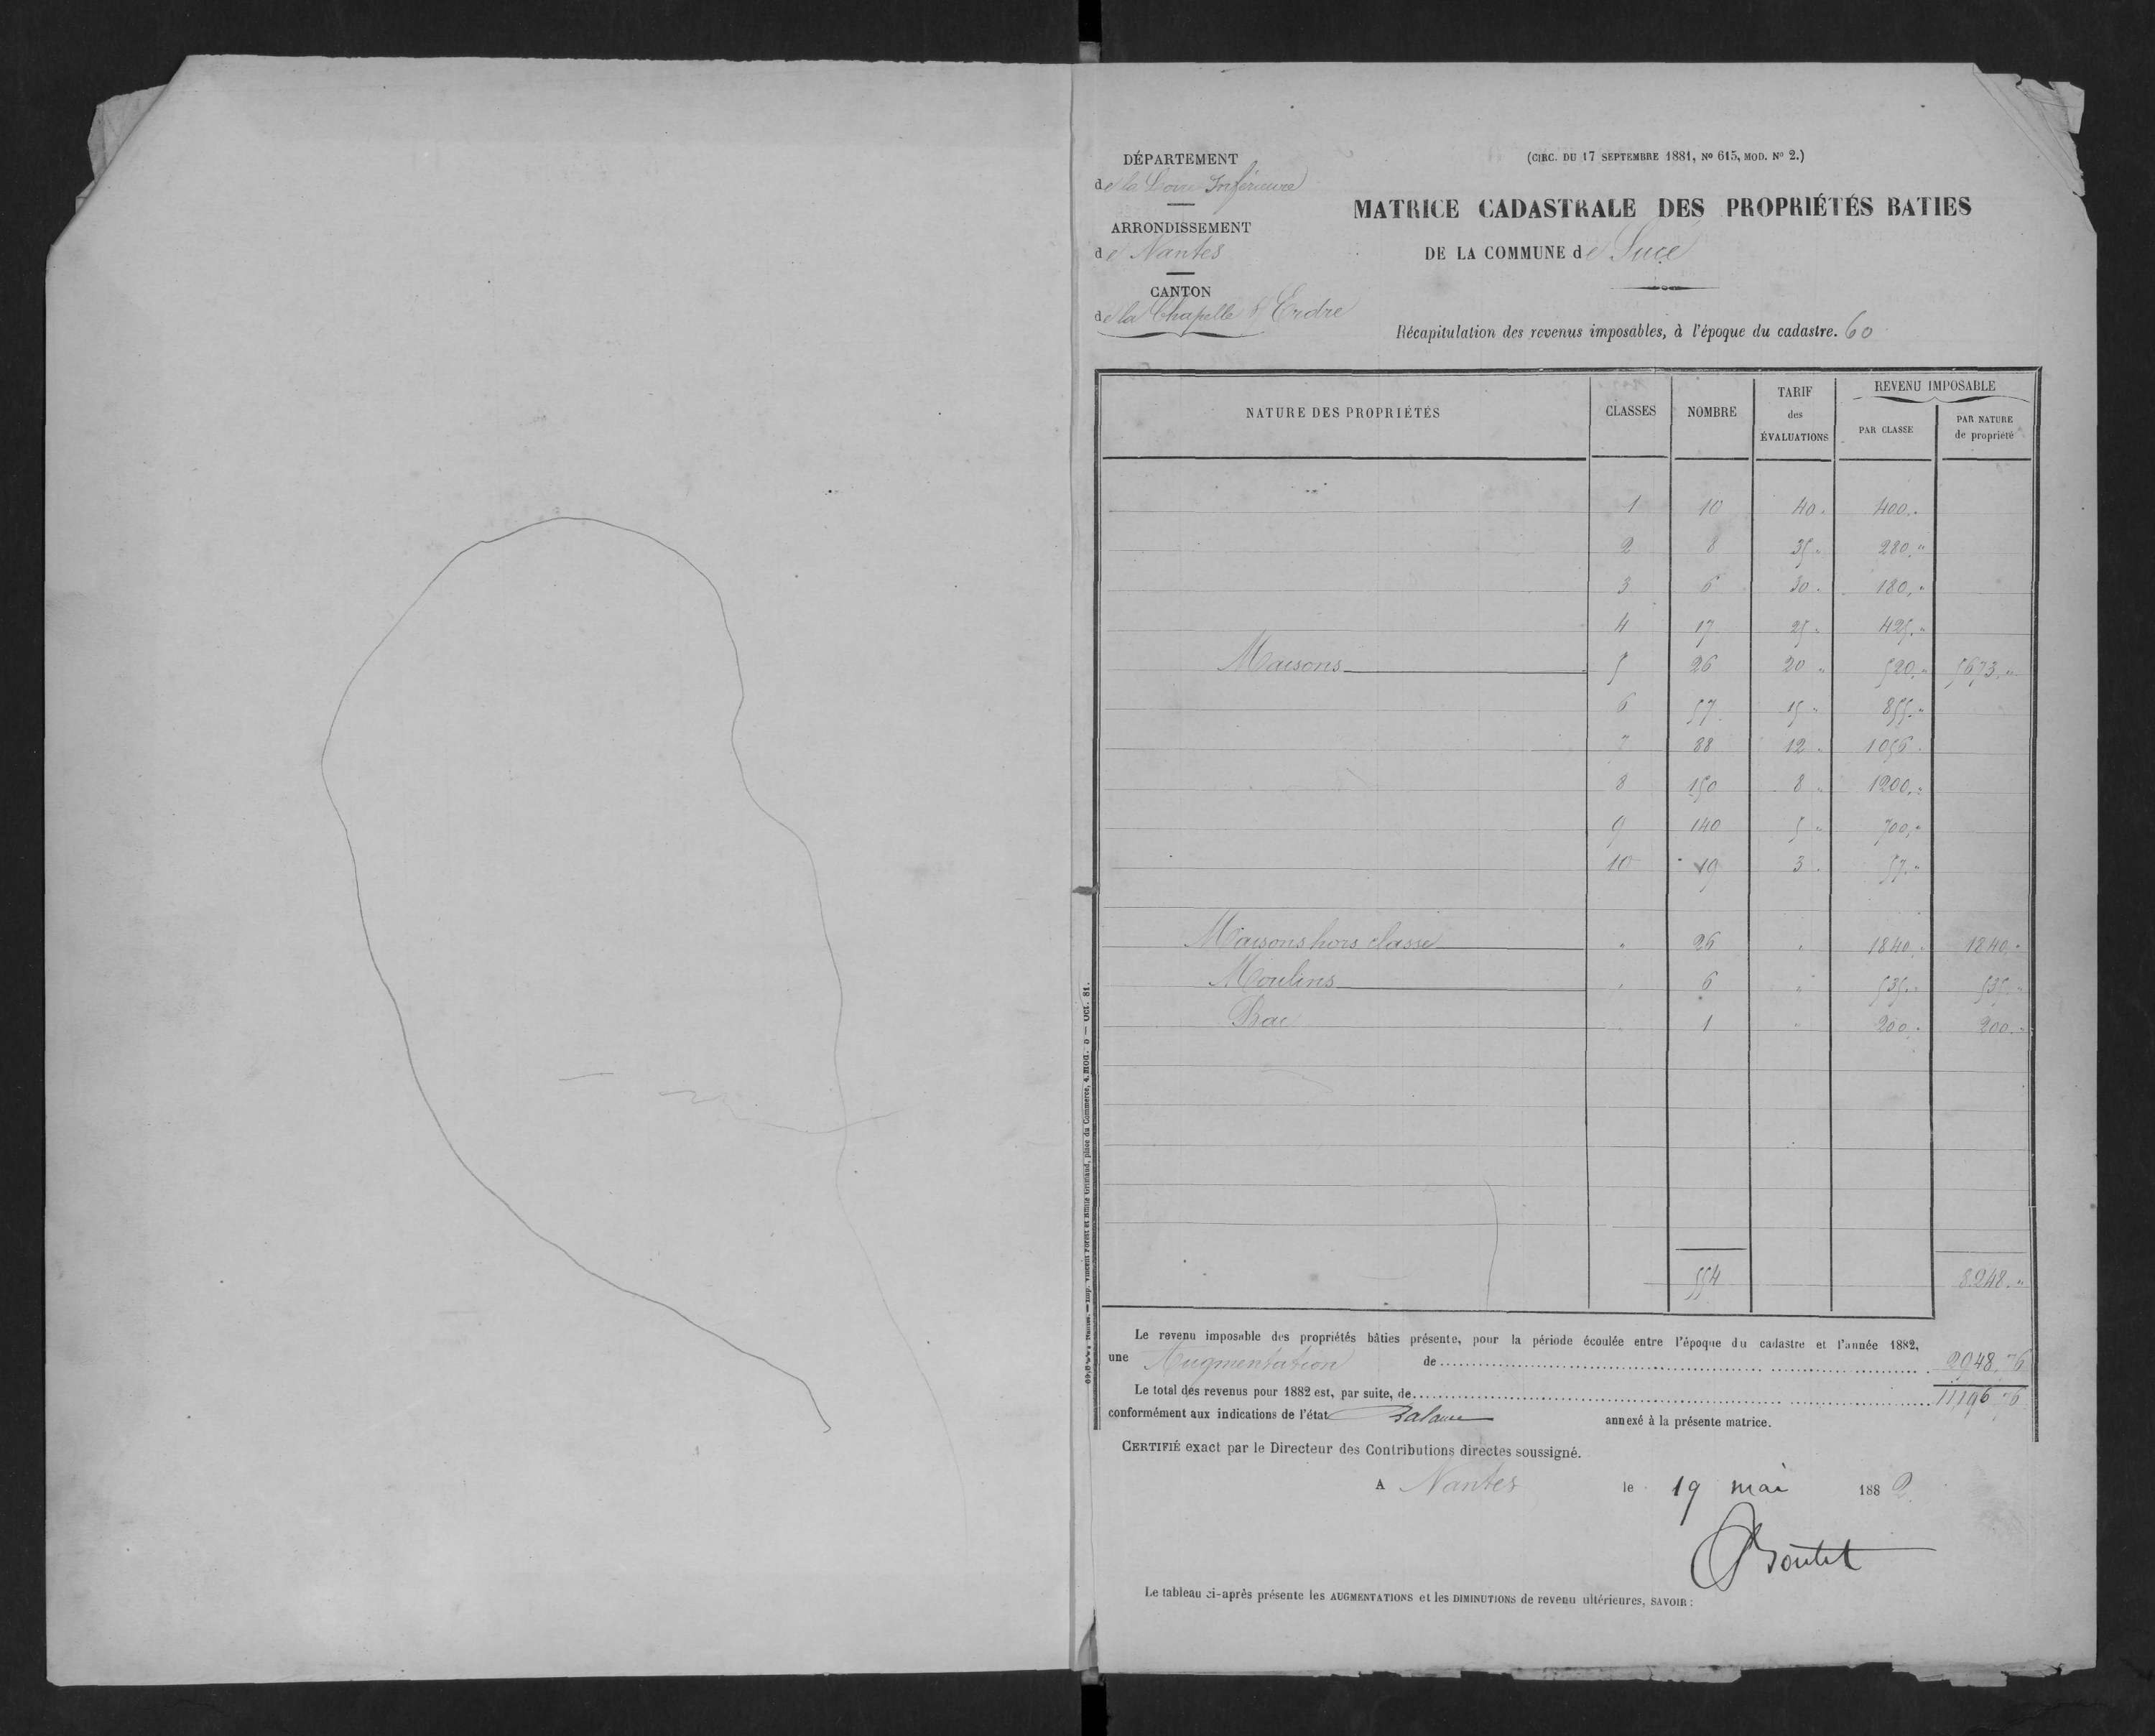 DÉPARTEMENT
de la Loire Inférieure
ARRONDISSEMENT
de Nantes
CANTON
de la Chapelle s/ Erdre
(CIRC. DU 17 SEPTEMBRE 1881, No 615, MOD. No 2.)
MATRICE CADASTRALE DES PROPRIÉTÉS BATIES
DE LA COMMUNE de Sucé
Récapitulation des revenus imposables, à l'époque du cadastre. 60
NATURE DES PROPRIÉTÉS CLASSES NOMBRE TARIF des ÉVALUATIONS REVENU IMPOSABLE PAR CLASSE PAR NATURE de propriété
1 10 40 " 400. "
2 8 35 " 280. "
3 6 30 " 180. "
4 17 25 " 425. "
Maisons 5 26 20 " 520. " 5673. "
6 57 15 " 855. "
7 88 12 " 1056 "
8 150 8 " 1200. "
9 140 5 " 700. "
10 19 3 " 57. "
Maisons hors classe " 26 " 1840. " 1840. "
Moulins " 6 " 535. " 535. "
Bac 1 " 200. " 200. "
554 8248. "
Le revenu imposable des propriétés bâties présente, pour la période écoulée entre l'époque du cadastre et l'année 1882,
une Augmentation de 2948,76
Le total des revenus pour 1882 est, par suite, de 11,196 76
conformément aux indications de l'état Balance annexé à la présente matrice.
CERTIFIÉ exact par le Directeur des Contributions directes soussigné.
A Nantes le 19 mai 1882
Boutet
Le tableau ci-après présente les AUGMENTATIONS et les DIMINUTIONS de revenu ultérieures, SAVOIR :
Nantes. — Imp. Vincent Forest et Émile Grimaud, place du Commerce, 4. MOD. 5 — Oct. 81.